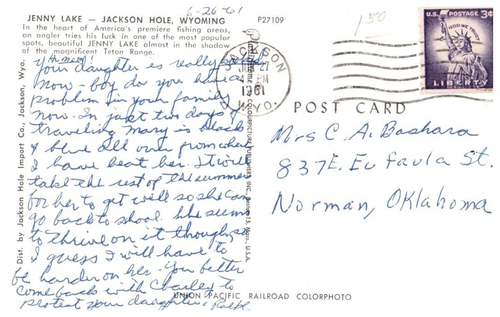 6-26-61
JENNY LAKE — JACKSON HOLE, WYOMING
P27109
In the heart of America's premiere fishing areas,
an angler tries his luck in one of the most popular
spots, beautiful JENNY LAKE almost in the shadow
of the magnificent Teton Range.
Hi mom!
Your daughter is really
now - boy do you have a
problem in your family
now. In just two days of
traveling Mary is black
& blue all over from where
I have beat her. It will
take the rest of the summer
for her to get well so she can
go back to school. She seems
to thrive on it though so
I guess I will have to
be harder on her. You better
come back with Charley to
protect your daughter.
Dist. by Jackson Hole Import Co., Jackson, Wyo.
UNION PACIFIC RAILROAD COLORPHOTO
150
JACKSON
PM
1961
WYO.
U.S. POSTAGE 3¢
IN GOD WE TRUST
LIBERTY
POST CARD
Mrs C. A. Bashara
837 E. Eufaula St.
Norman, Oklahoma